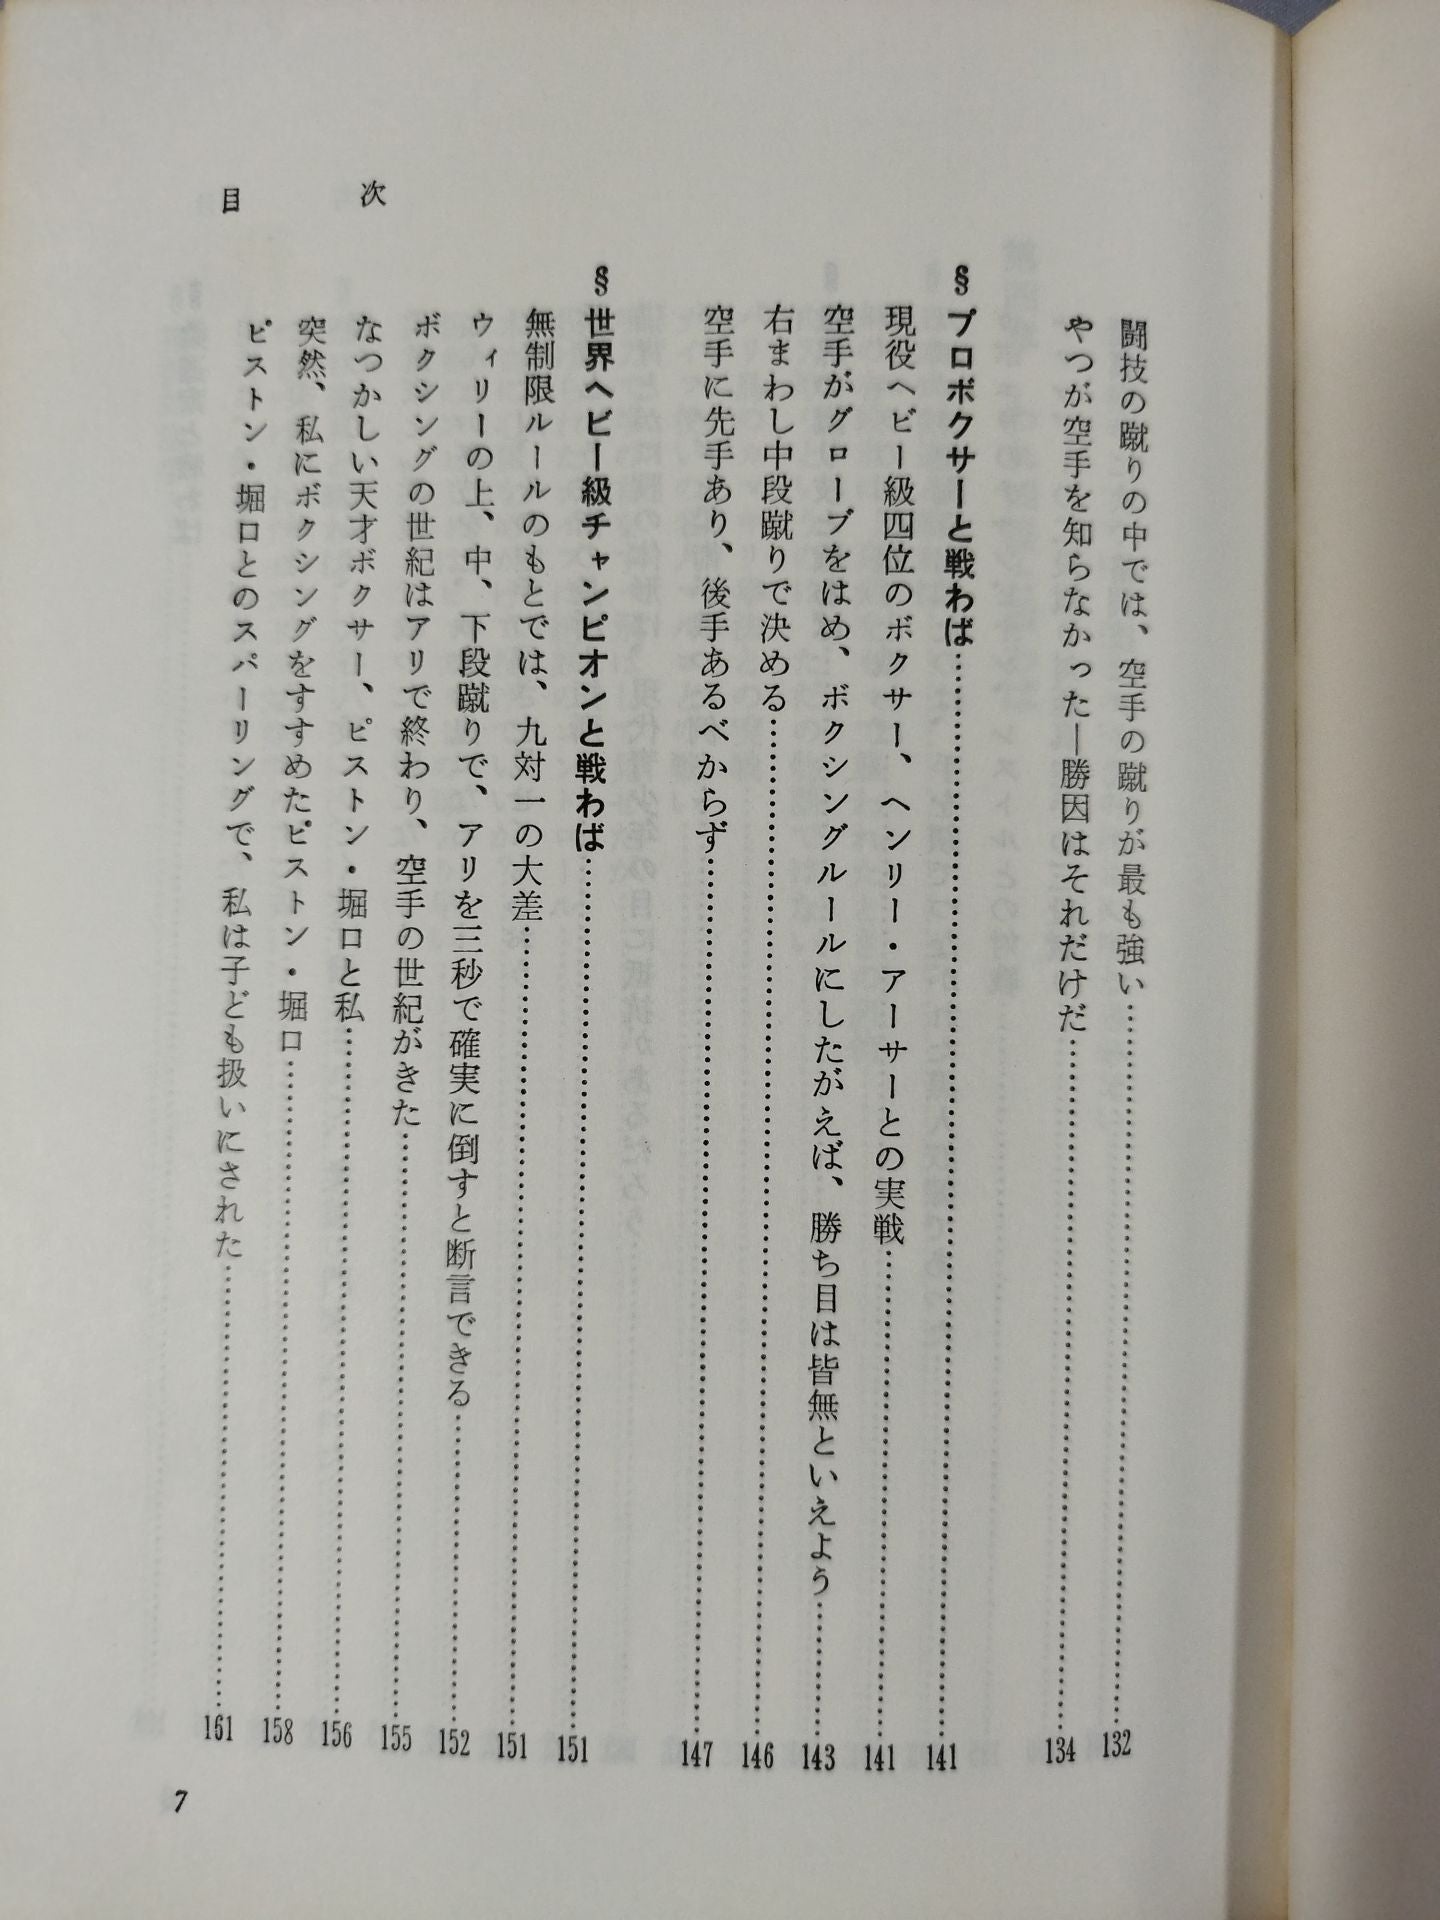 闘技の蹴りの中では、空手の蹴りが最も強い……132
やつが空手を知らなかった―勝因はそれだけだ……134
§プロボクサーと戦わば……141
現役ヘビー級四位のボクサー、ヘンリー・アーサーとの実戦……141
空手がグローブをはめ、ボクシングルールにしたがえば、勝ち目は皆無といえよう……143
右まわし中段蹴りで決める……146
空手に先手あり、後手あるべからず……147
§世界ヘビー級チャンピオンと戦わば……151
無制限ルールのもとでは、九対一の大差……151
ウィリーの上、中、下段蹴りで、アリを三秒で確実に倒すと断言できる……152
ボクシングの世紀はアリで終わり、空手の世紀がきた……155
なつかしい天才ボクサー、ピストン・堀口と私……156
突然、私にボクシングをすすめたピストン・堀口……158
ピストン・堀口とのスパーリングで、私は子ども扱いにされた……161
目次
7